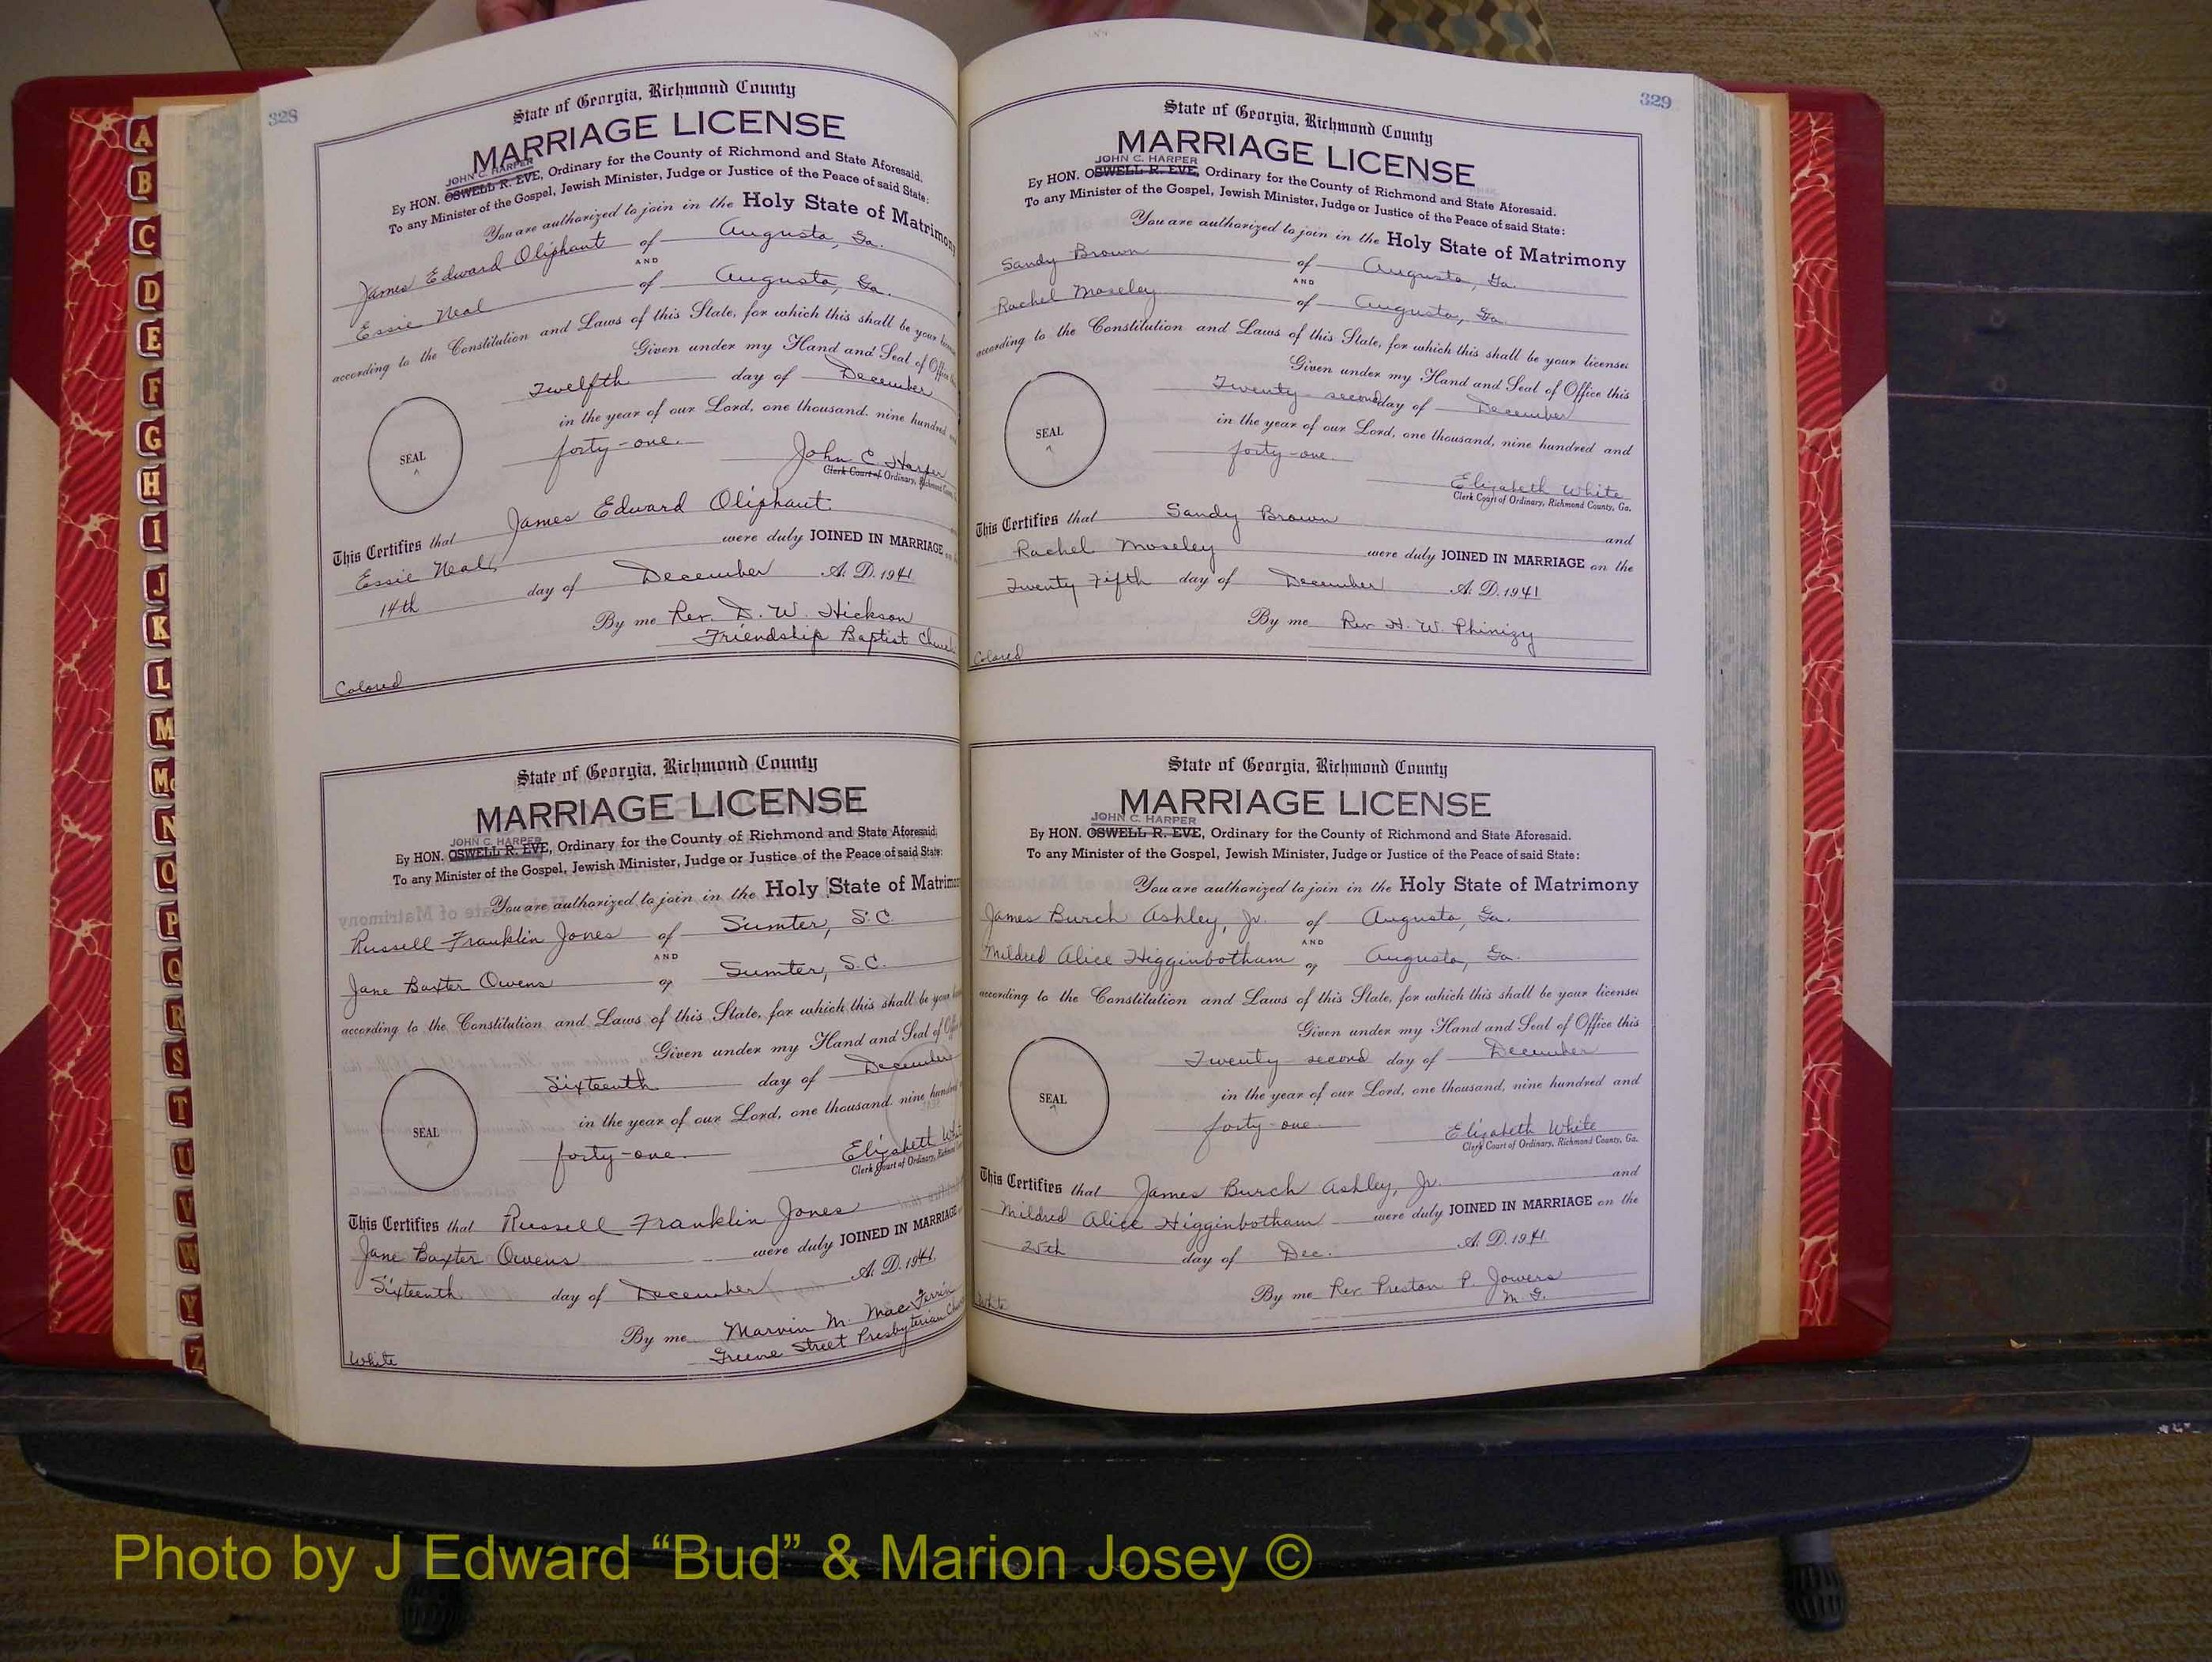 328
State of Georgia, Richmond County
MARRIAGE LICENSE
JOHN C. HARPER
By HON. OSWELL R. EVE, Ordinary for the County of Richmond and State Aforesaid.
To any Minister of the Gospel, Jewish Minister, Judge or Justice of the Peace of said State:
You are authorized to join in the Holy State of Matrimony
James Edward Oliphant of Augusta, Ga.
AND
Essie Neal of Augusta, Ga.
according to the Constitution and Laws of this State, for which this shall be your
Given under my Hand and Seal of Office
Twelfth day of December
in the year of our Lord, one thousand, nine hundred
forty-one.
SEAL
John C Harper
Clerk Court of Ordinary, Richmond
This Certifies that James Edward Oliphant
Essie Neal, were duly JOINED IN MARRIAGE
14th day of December A. D. 1941
By me Rev. D. W. Hickson
Friendship Baptist Church
Colored
State of Georgia, Richmond County
MARRIAGE LICENSE
JOHN C. HARPER
By HON. OSWELL R. EVE, Ordinary for the County of Richmond and State Aforesaid.
To any Minister of the Gospel, Jewish Minister, Judge or Justice of the Peace of said State:
You are authorized to join in the Holy State of Matrimony
Russell Franklin Jones of Sumter, S.C.
AND
Jane Baxter Owens of Sumter, S.C.
according to the Constitution and Laws of this State, for which this shall be your
Given under my Hand and Seal of
Sixteenth day of December
in the year of our Lord, one thousand, nine hundred
forty-one.
SEAL
Elizabeth White
Clerk Court of Ordinary,
This Certifies that Russell Franklin Jones
Jane Baxter Owens were duly JOINED IN MARRIAGE
Sixteenth day of December A. D. 1941
By me Marvin M. Mac
Greene Street Presbyterian
White
329
State of Georgia, Richmond County
MARRIAGE LICENSE
JOHN C. HARPER
By HON. OSWELL R. EVE, Ordinary for the County of Richmond and State Aforesaid.
To any Minister of the Gospel, Jewish Minister, Judge or Justice of the Peace of said State:
You are authorized to join in the Holy State of Matrimony
Sandy Brown of Augusta, Ga.
AND
Rachel Moseley of Augusta, Ga.
according to the Constitution and Laws of this State, for which this shall be your license:
Given under my Hand and Seal of Office this
Twenty-second day of December
in the year of our Lord, one thousand, nine hundred and
forty-one.
SEAL
Elizabeth White
Clerk Court of Ordinary, Richmond County, Ga.
This Certifies that Sandy Brown and
Rachel Moseley were duly JOINED IN MARRIAGE on the
Twenty Fifth day of December A. D. 1941
By me Rev H. W. Phinizy
Colored
State of Georgia, Richmond County
MARRIAGE LICENSE
JOHN C. HARPER
By HON. OSWELL R. EVE, Ordinary for the County of Richmond and State Aforesaid.
To any Minister of the Gospel, Jewish Minister, Judge or Justice of the Peace of said State:
You are authorized to join in the Holy State of Matrimony
James Burch Ashley, Jr. of Augusta, Ga.
AND
Mildred Alice Higginbotham of Augusta, Ga.
according to the Constitution and Laws of this State, for which this shall be your license:
Given under my Hand and Seal of Office this
Twenty-second day of December
in the year of our Lord, one thousand, nine hundred and
forty-one.
SEAL
Elizabeth White
Clerk Court of Ordinary, Richmond County, Ga.
This Certifies that James Burch Ashley, Jr. and
Mildred Alice Higginbotham were duly JOINED IN MARRIAGE on the
25th day of Dec. A. D. 1941
By me Rev Preston P. Jowers
M. G.
White
A
B
C
D
E
F
G
H
I
J
K
L
M
Mc
N
O
P
Q
R
S
T
U
V
W
Y
Z
Photo by J Edward “Bud” & Marion Josey ©